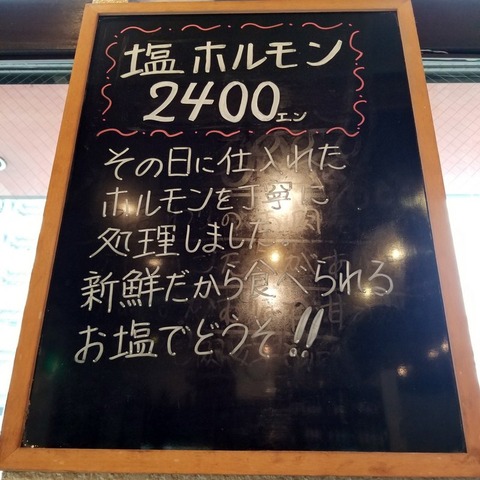 塩ホルモン
2400エン
その日に仕入れた
ホルモンを丁寧に
処理しました。
新鮮だから食べられる
お塩でどうぞ!!